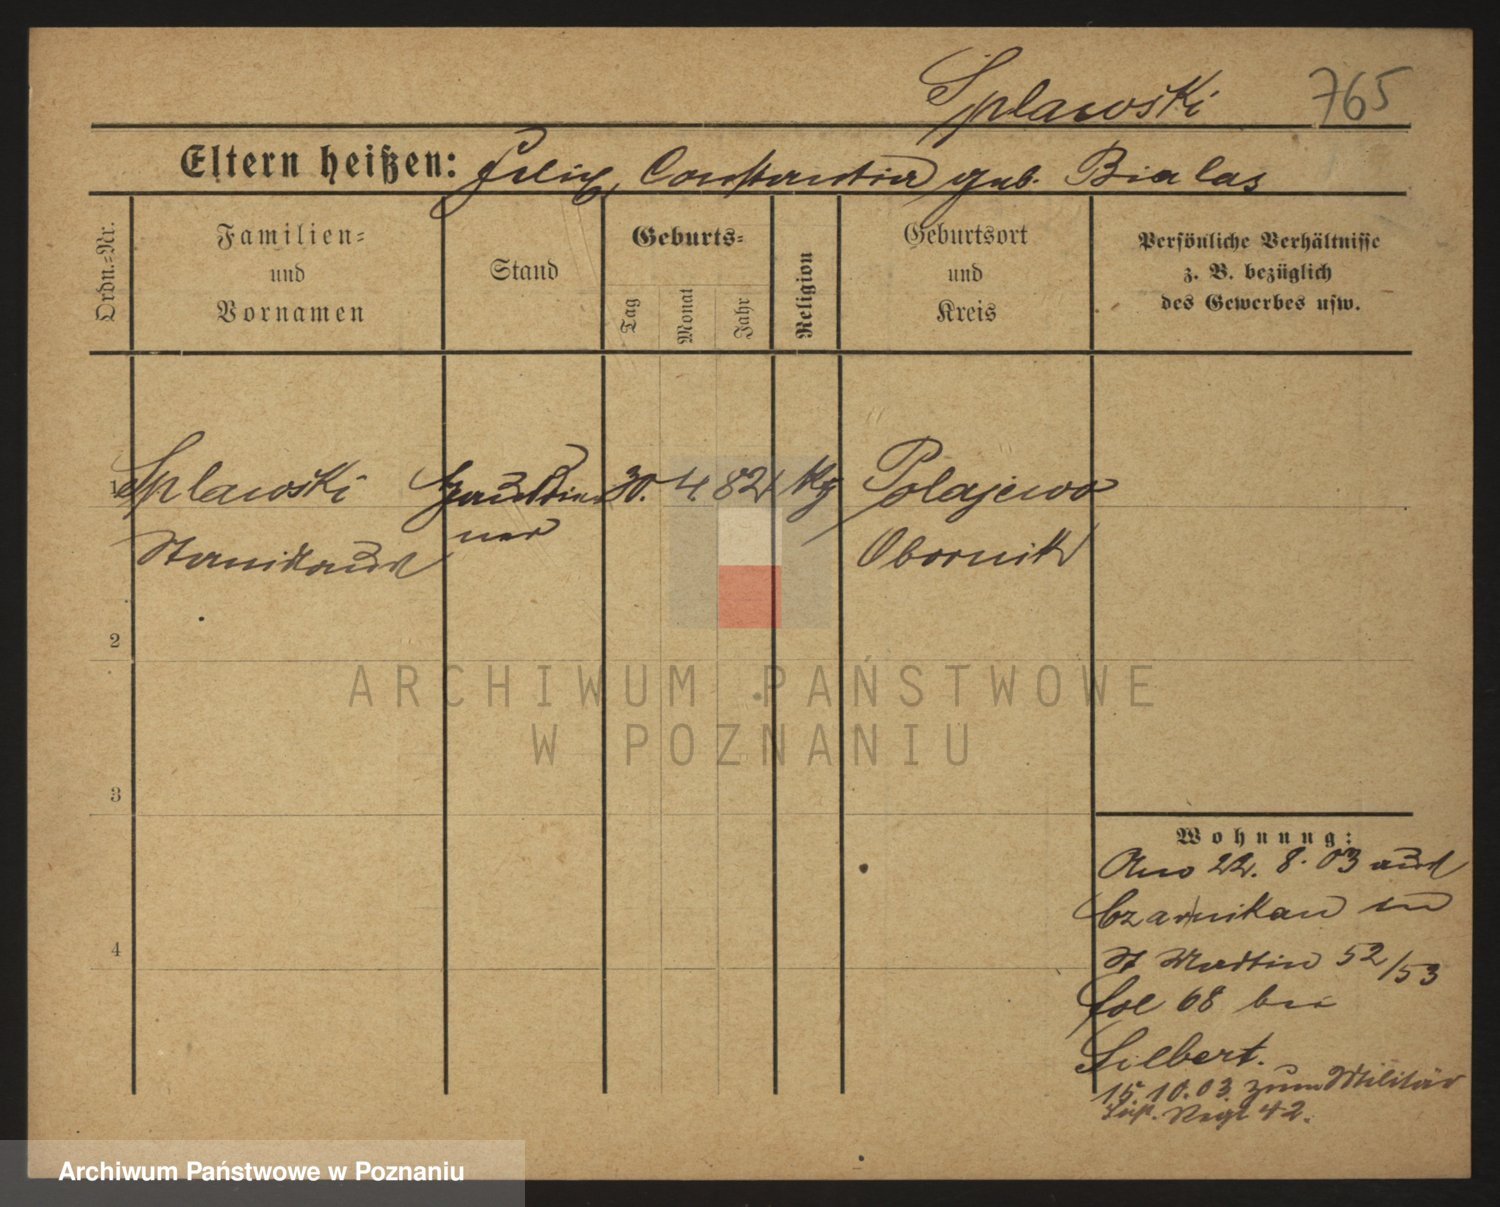 Splawski 765
Eltern heißen: Felix, Constantia geb. Bialas
Ordn.=Nr.
Familien=
und
Vornamen
Stand
Geburts=
Tag
Monat
Jahr
Religion
Geburtsort
und
Kreis
Persönliche Verhältnisse
z. B. bezüglich
des Gewerbes usw.
1 Splawski 30. 4. 82 Polajewo
Stanislaus Obornik
2
3
4
Wohnung:
22. 8. 03 aus
Czarnikau
St Martin 52/53
fol 68 bei
Silbert.
15. 10. 03 zum Militär
Inf. Regt 42.
ARCHIWUM PAŃSTWOWE
W POZNANIU
Archiwum Państwowe w Poznaniu